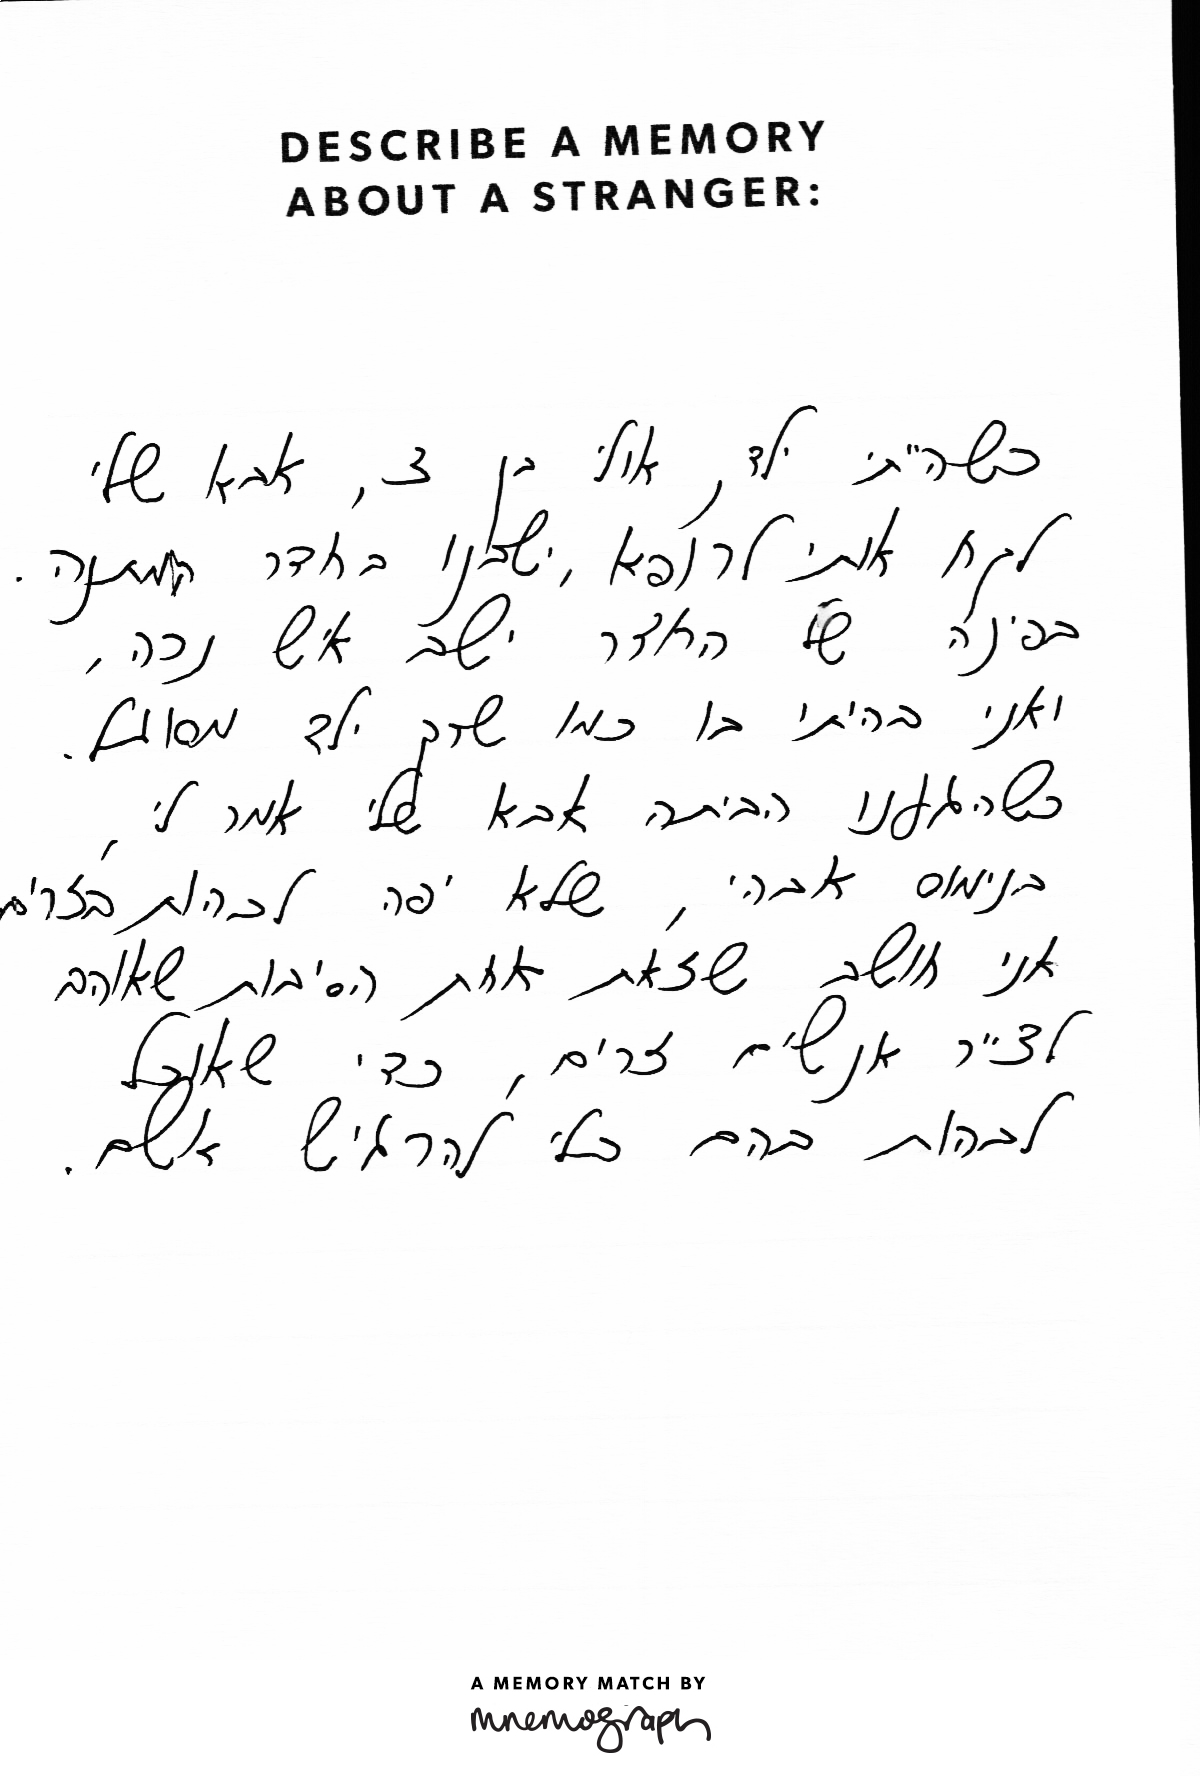 DESCRIBE A MEMORY
ABOUT A STRANGER:
כשהייתי ילד, אולי בן 3, אבא שלי
לקח אותי לרופא, ישבנו בחדר המתנה.
בפינה של החדר ישב איש נכה,
ואני בהיתי בו כמו שרק ילד מסוגל.
כשהגענו הביתה אבא שלי אמר לי,
בנימוס אבהי, שלא יפה לבהות בזרים
אני חושב שזאת אחת הסיבות שאוהב
לצייר אנשים זרים, כדי שאוכל
לבהות בהם בלי להרגיש אשם.
A MEMORY MATCH BY
mnemograph